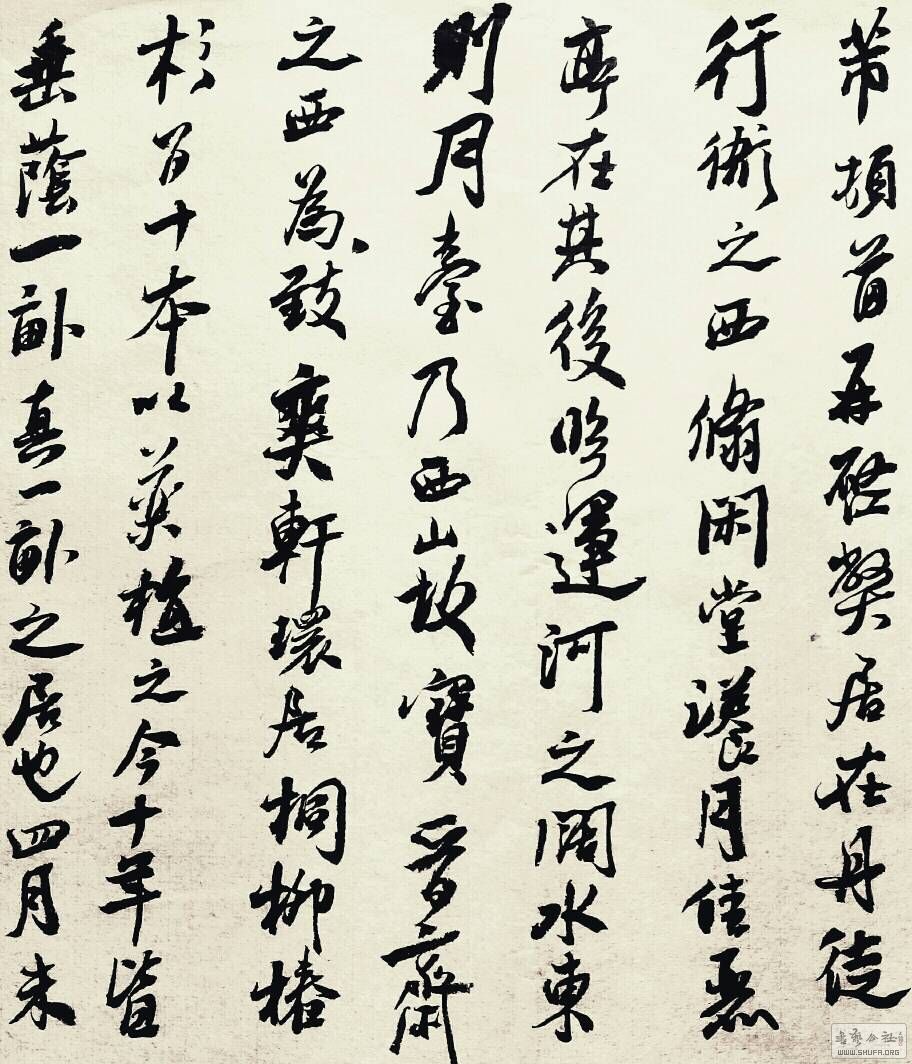 芾頓首再啓弊居在丹徒
行衙之西翛閑堂漾月佳麗
亭在其後臨運河之闊水東
則月臺乃西山故寶晉齋
之西為致爽軒環居桐柳椿
杉百十本以藥植之今十年皆
垂蔭一畝真一畝之居也四月末
WWW.SHUFA.ORG